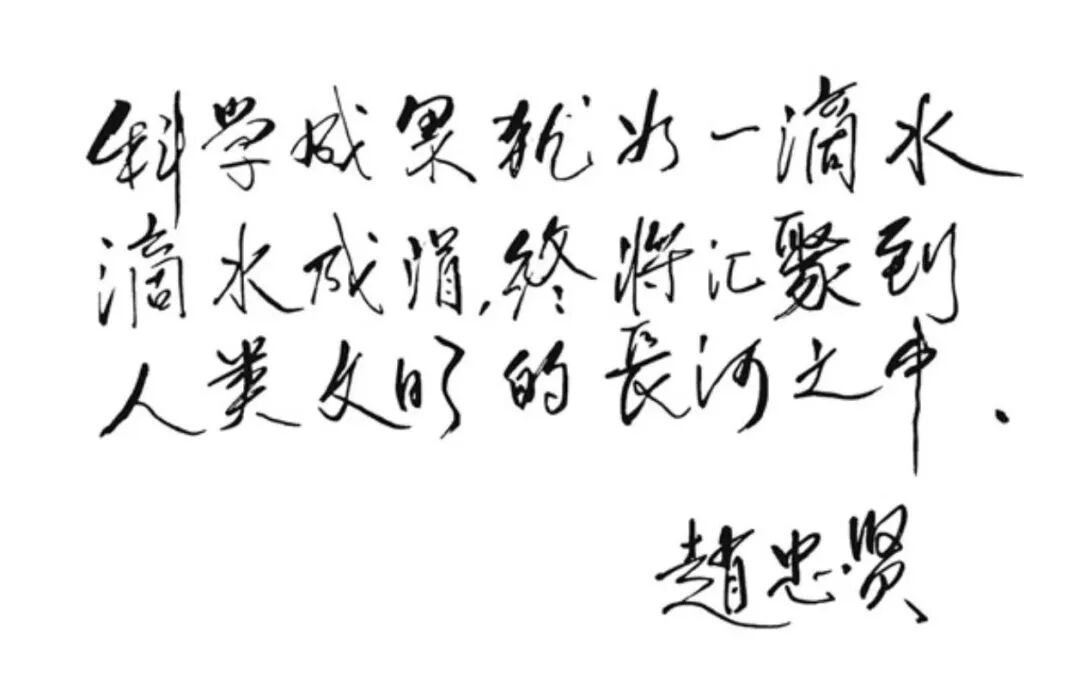 科学成果犹如一滴水
滴水成涓,终将汇聚到
人类文明的長河之中.
趙忠贤